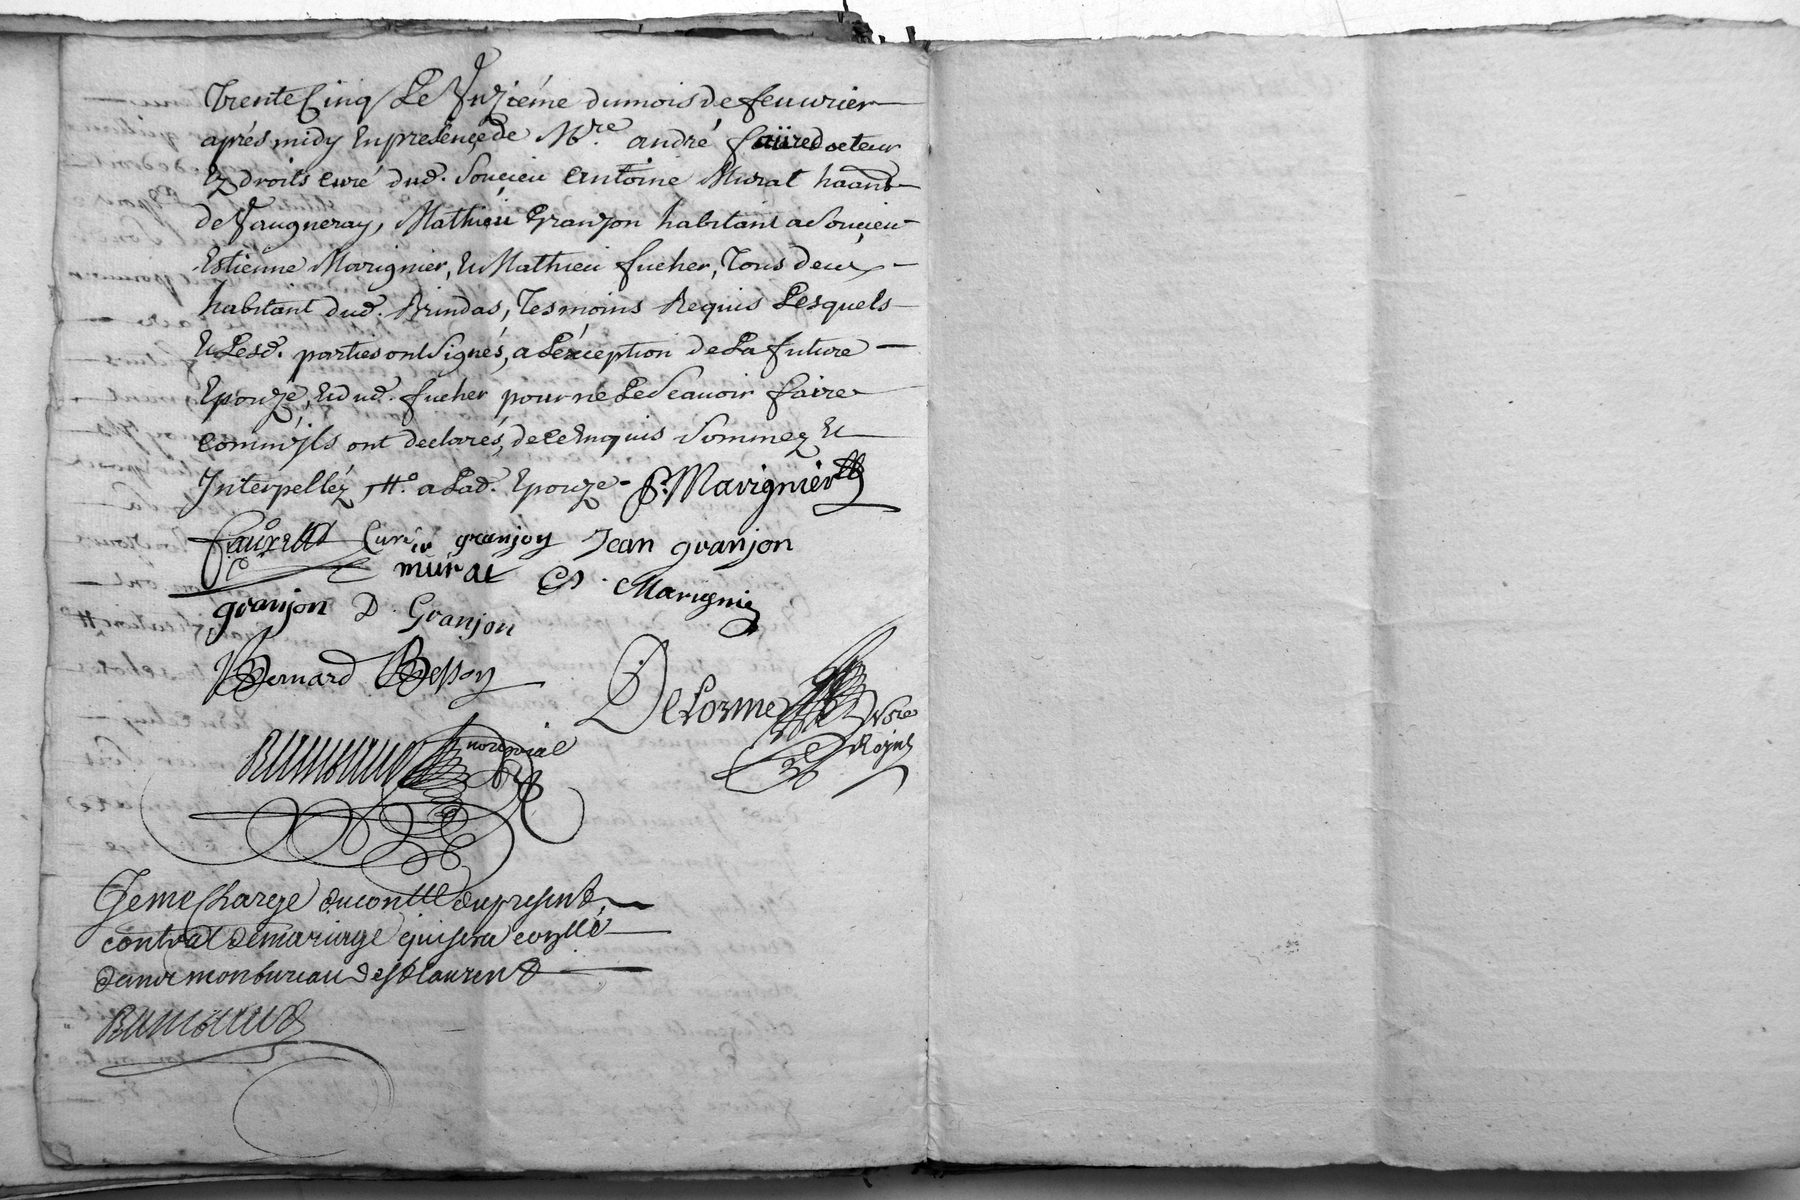 Trente Cinq Le Vnzieme du mois de feuurier
aprés midy En presençe de Mre. andré faüre docteur
Ez droits curé dud. Soucieu Antoine Murat haant
de Vaugneray, Mathieu Granjon habitant a Soucieu
Estienne Marignier, Et Mathieu fucher, Tous deux
habitant dud. Brindas, Tesmoins Requis Lesquels
Et Lesd. parties ont Signés, a L'exception de La future
Epouze, Et dud. fucher pour ne Le Scauoir faire
comm'jls ont declarés, de ce Enquis Sommez Et
Interpelléz, a Lad. Epouze P. Marignier
faure Curé granjon Jean granjon
murat Marignier
granjon D. Granjon
Bernard Besson
Delorme Nore Royal
Rambaud
Je me charge du conlle du present
contrat de mariage qui sera conllé
dans mon bureau de st laurent
Rambaud